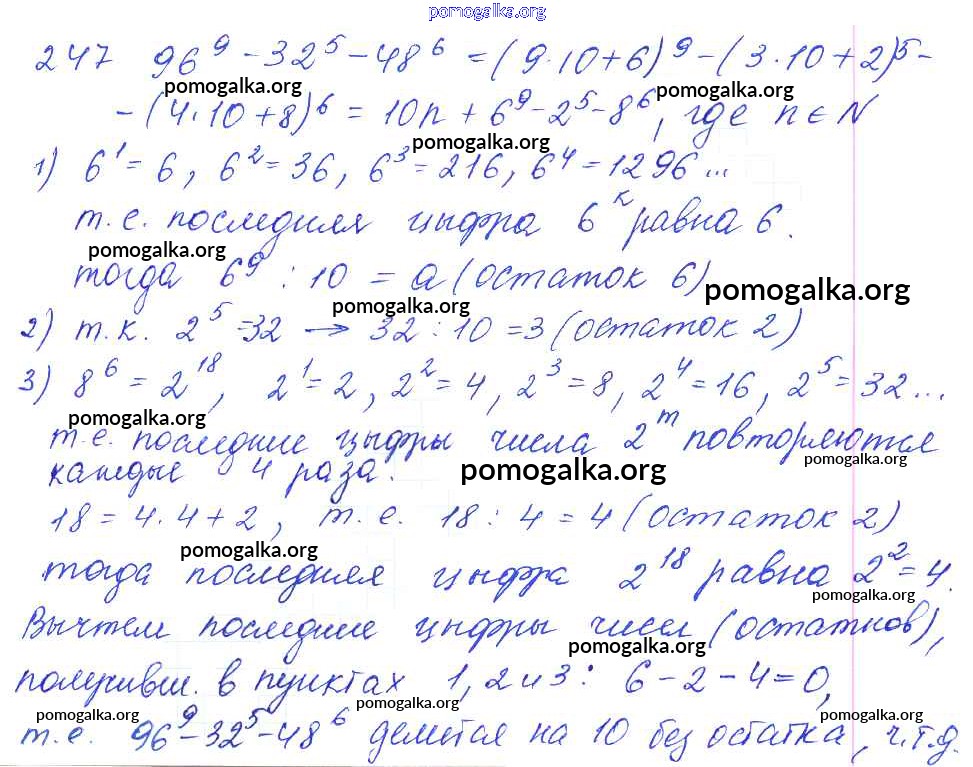 pomogalka.org
247 96⁹ - 32⁵ - 48⁶ = (9·10+6)⁹ - (3·10+2)⁵ -
pomogalka.org pomogalka.org
- (4·10+8)⁶ = 10n + 6⁹ - 2⁵ - 8⁶, где n ∈ N
pomogalka.org
1) 6¹ = 6, 6² = 36, 6³ = 216, 6⁴ = 1296...
т.е. последняя цыфра 6ᵏ равна 6.
pomogalka.org
тогда 6⁹ : 10 = a (остаток 6)
pomogalka.org
pomogalka.org
2) т.к. 2⁵ = 32 → 32 : 10 = 3 (остаток 2)
3) 8⁶ = 2¹⁸, 2¹ = 2, 2² = 4, 2³ = 8, 2⁴ = 16, 2⁵ = 32...
pomogalka.org
т.е. последние цыфры числа 2ᵐ повторяются
pomogalka.org
каждые 4 раза.
pomogalka.org
18 = 4·4 + 2, т.е. 18 : 4 = 4 (остаток 2)
pomogalka.org
тогда последняя цыфра 2¹⁸ равна 2² = 4.
pomogalka.org
Вычтем последние цыфры чисел (остатков),
pomogalka.org
получивш. в пунктах 1, 2 и 3: 6 - 2 - 4 = 0,
pomogalka.org pomogalka.org pomogalka.org
т.е. 96⁹ - 32⁵ - 48⁶ делится на 10 без остатка, ч.т.д.